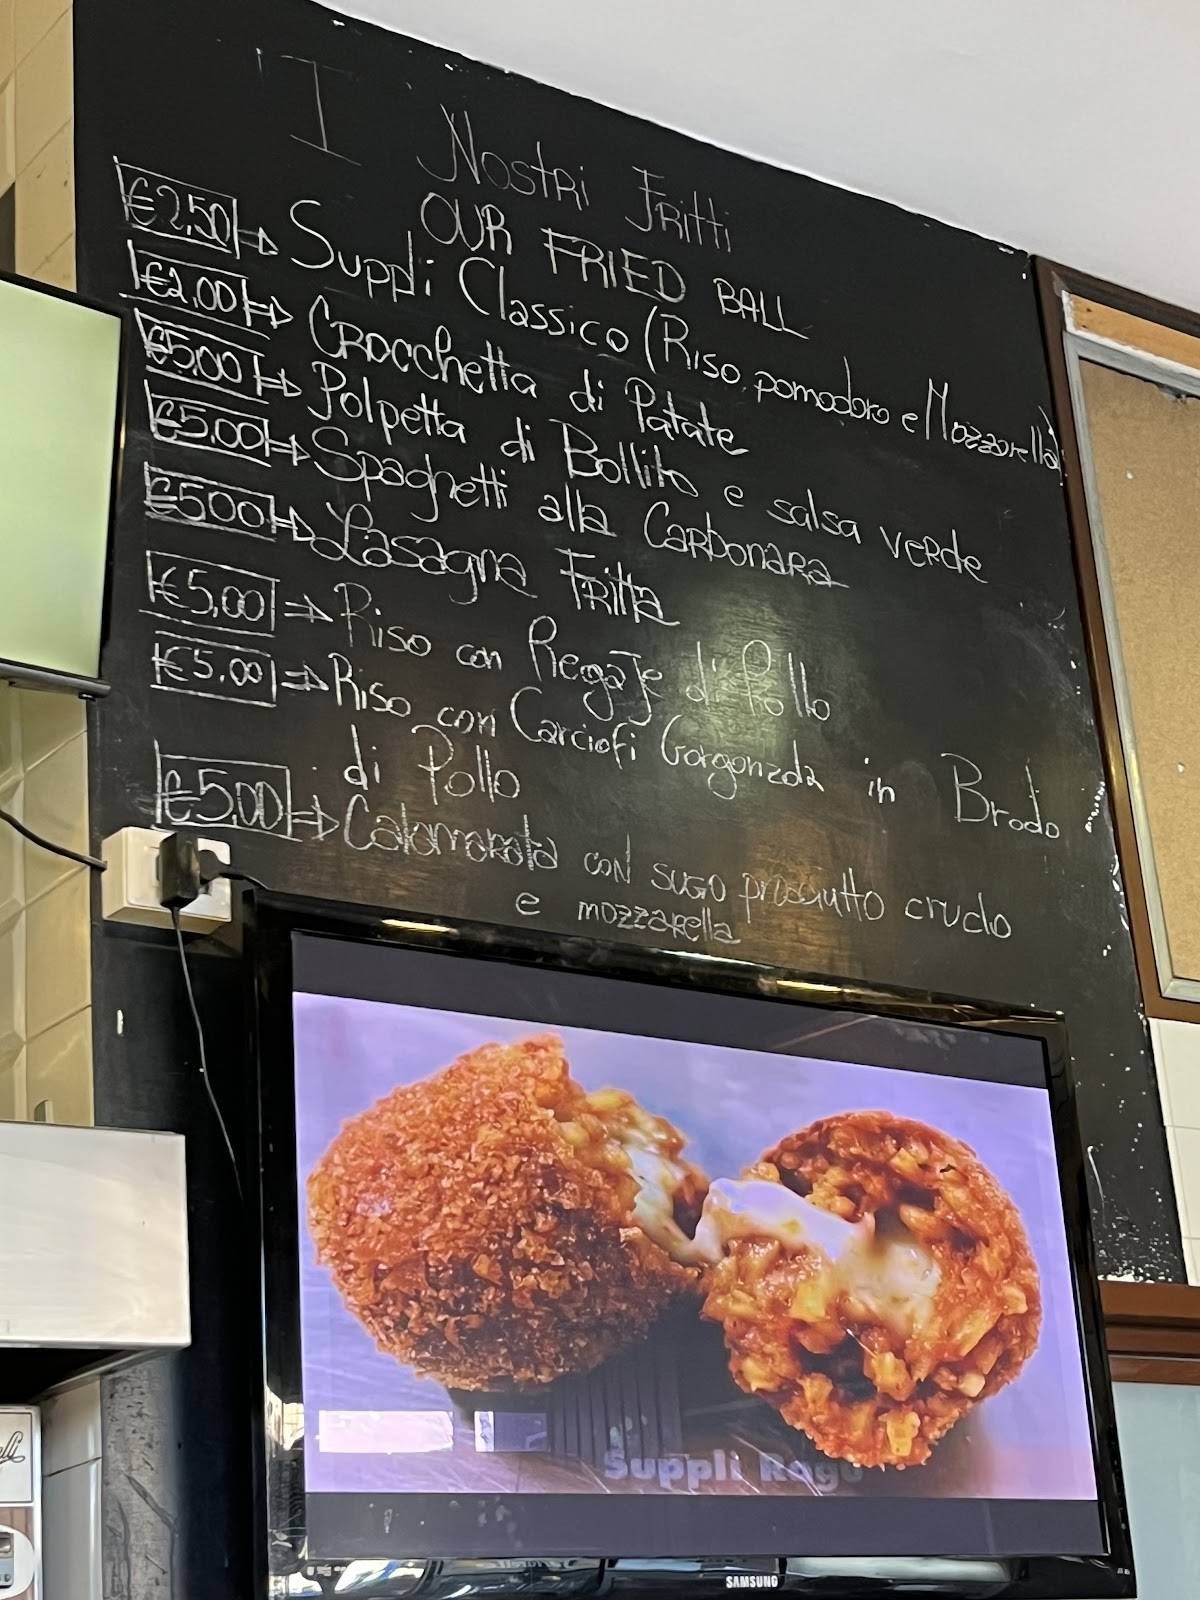 I Nostri Fritti
OUR FRIED BALL
€2,50 ⇒ Supplì Classico (Riso, pomodoro e Mozzarella)
€2,00 ⇒ Crocchetta di Patate
€5,00 ⇒ Polpetta di Bollito e salsa verde
€5,00 ⇒ Spaghetti alla Carbonara
€500 ⇒ Lasagna Fritta
€5,00 ⇒ Riso con Regaje di Pollo
€5,00 ⇒ Riso con Carciofi Gorgonzola in Brodo
di Pollo
€5,00 ⇒ Calamarata con sugo prosciutto crudo
e mozzarella
Suppli Ragu
SAMSUNG